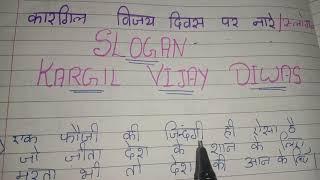 कारगिल विजय दिवस पर नारे/स्लोगन
SLOGAN
KARGIL VIJAY DIWAS
एक फौजी की जिन्दगी ही ऐसा है
जो जीता देश के शान के लिए
मरता भी तो देश की आन के लिए